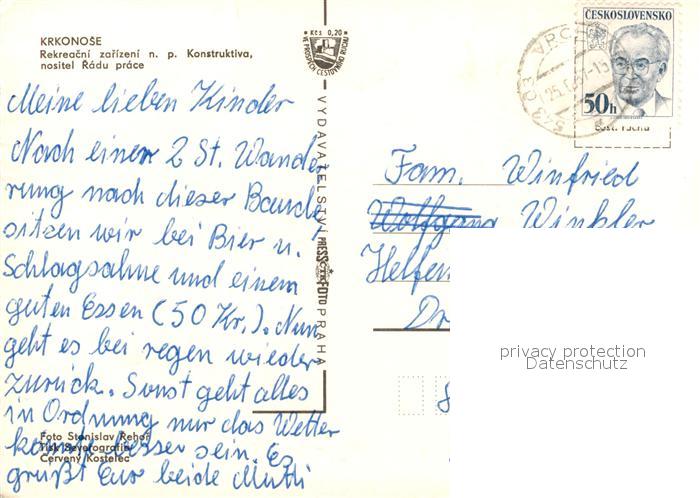 KRKONOŠE
Rekreační zařízení n. p. Konstruktiva,
nositel Řádu práce
Kčs 0,20
VE PROSPĚCH CESTOVNÍHO RUCHU
ČESKOSLOVENSKO
50h
Meine lieben Kinder
Nach einer 2 St. Wande
rung nach dieser Baude
sitzen wir bei Bier u.
Schlagsahne und einem
guten Essen (50 Kr.). Nun
geht es bei regen wieder
zurück. Sonst geht alles
in Ordnung nur das Wetter
könnte besser sein. Es
grüßt Eur beide Mutti
Foto Stanislav Řehoř
Tisk Severografia
Červený Kostelec
VYDAVATELSTVÍ PRESSFOTO PRAHA
Fam. Winfried
Wolfgang Winkler
Helfen
Dr
privacy protection
Datenschutz